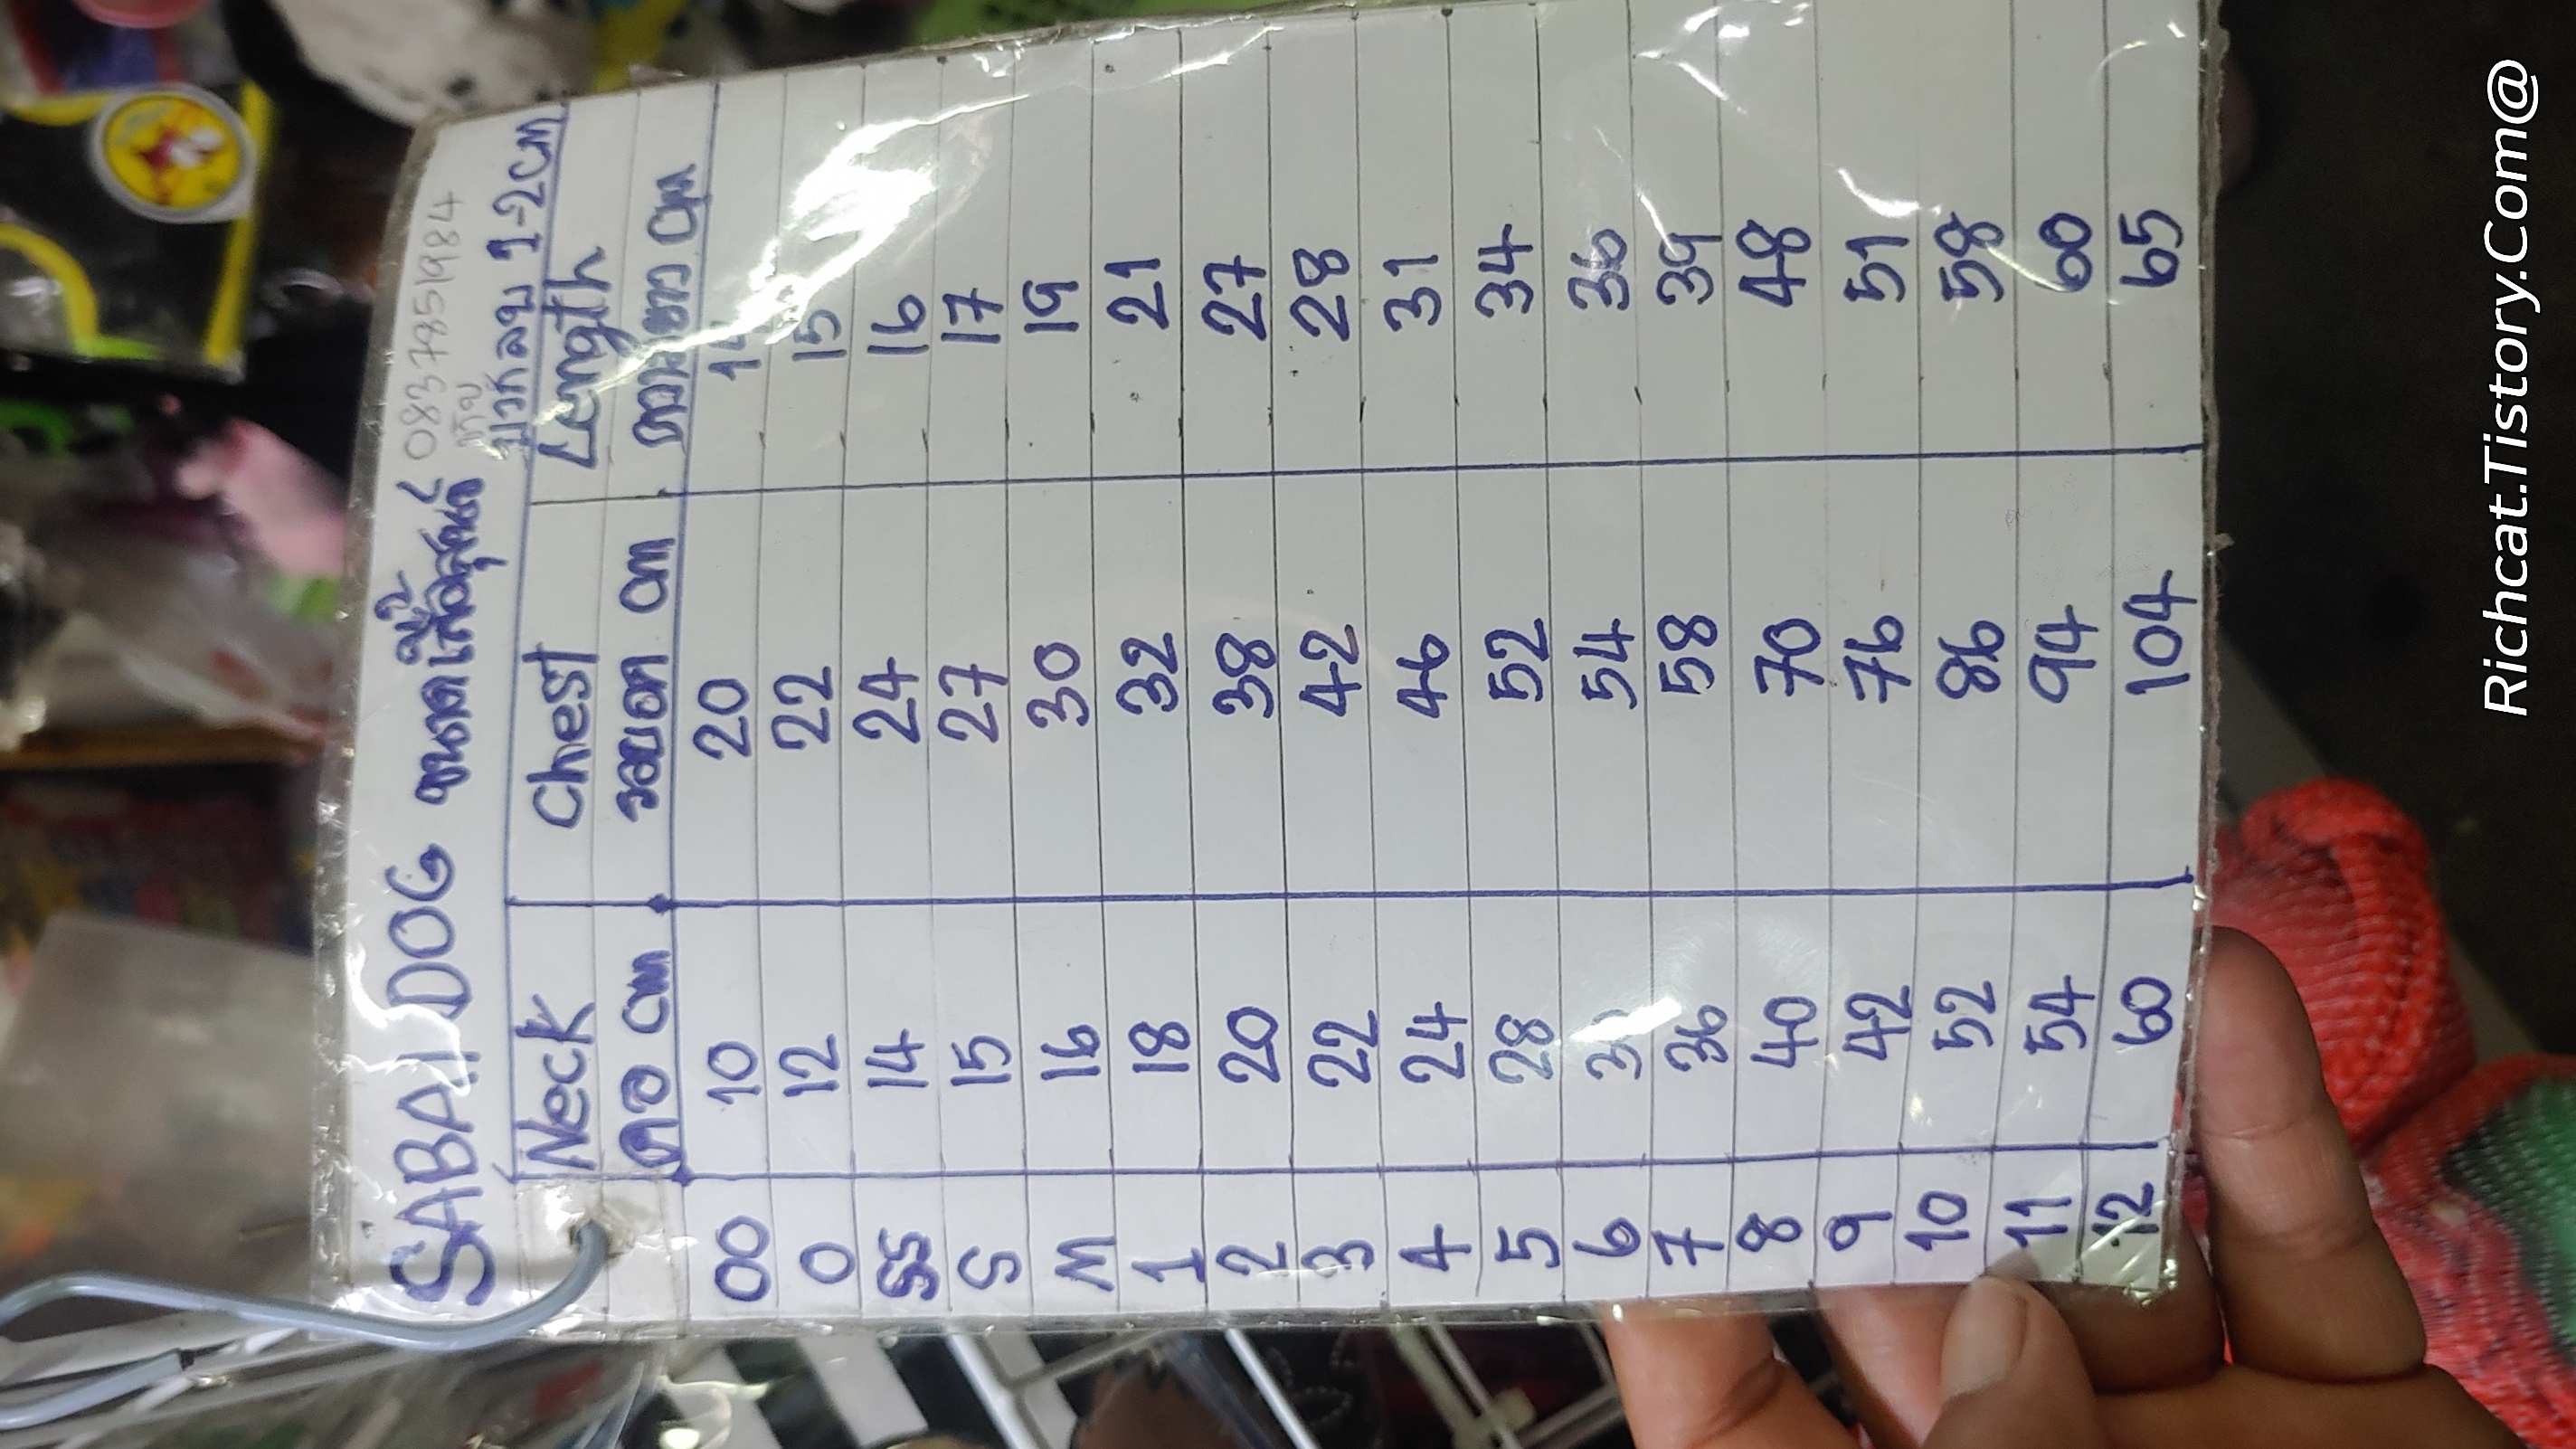 SABAI DOG ขนาดเสื้อสุนัข 0837851984
บวกลบ 1-2cm
Neck Chest Length
คอ cm รอบอก cm ความยาว cm
00 10 20
0 12 22 15
SS 14 24 16
S 15 27 17
M 16 30 19
1 18 32 21
2 20 38 27
3 22 42 28
4 24 46 31
5 28 52 34
6 54 36
7 36 58 39
8 40 70 48
9 42 76 51
10 52 86 58
11 54 94 60
12 60 104 65
Richcat.Tistory.Com@